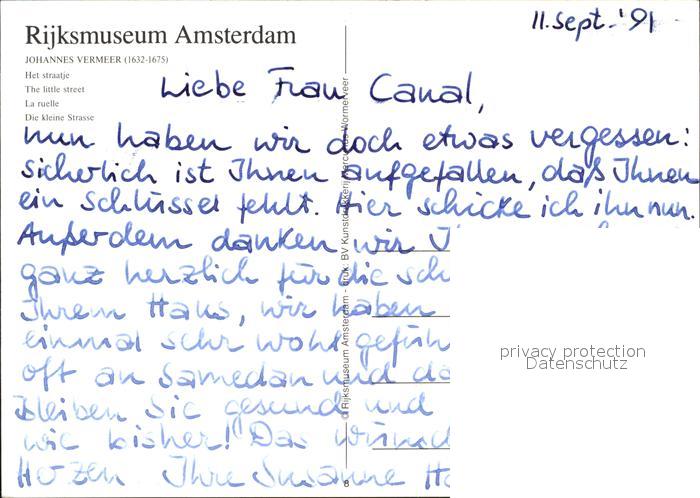 11. Sept. '91
Rijksmuseum Amsterdam
JOHANNES VERMEER (1632-1675)
Het straatje
The little street
La ruelle
Die kleine Strasse
Liebe Frau Canal,
nun haben wir doch etwas vergessen:
Sicherlich ist Ihnen aufgefallen, daß Ihnen
ein Schlüssel fehlt. Hier schicke ich ihn nun.
Außerdem danken wir I
ganz herzlich für die sch
Ihrem Haus, wir haben
einmal sehr wohl gefüh
oft an Samedan und da
Bleiben Sie gesund und
wie bisher! Das wünsc
Herzen Ihre Susanne
© Rijksmuseum Amsterdam - druk: BV Kunstdrukkerij Mercurius Wormerveer
8
privacy protection
Datenschutz